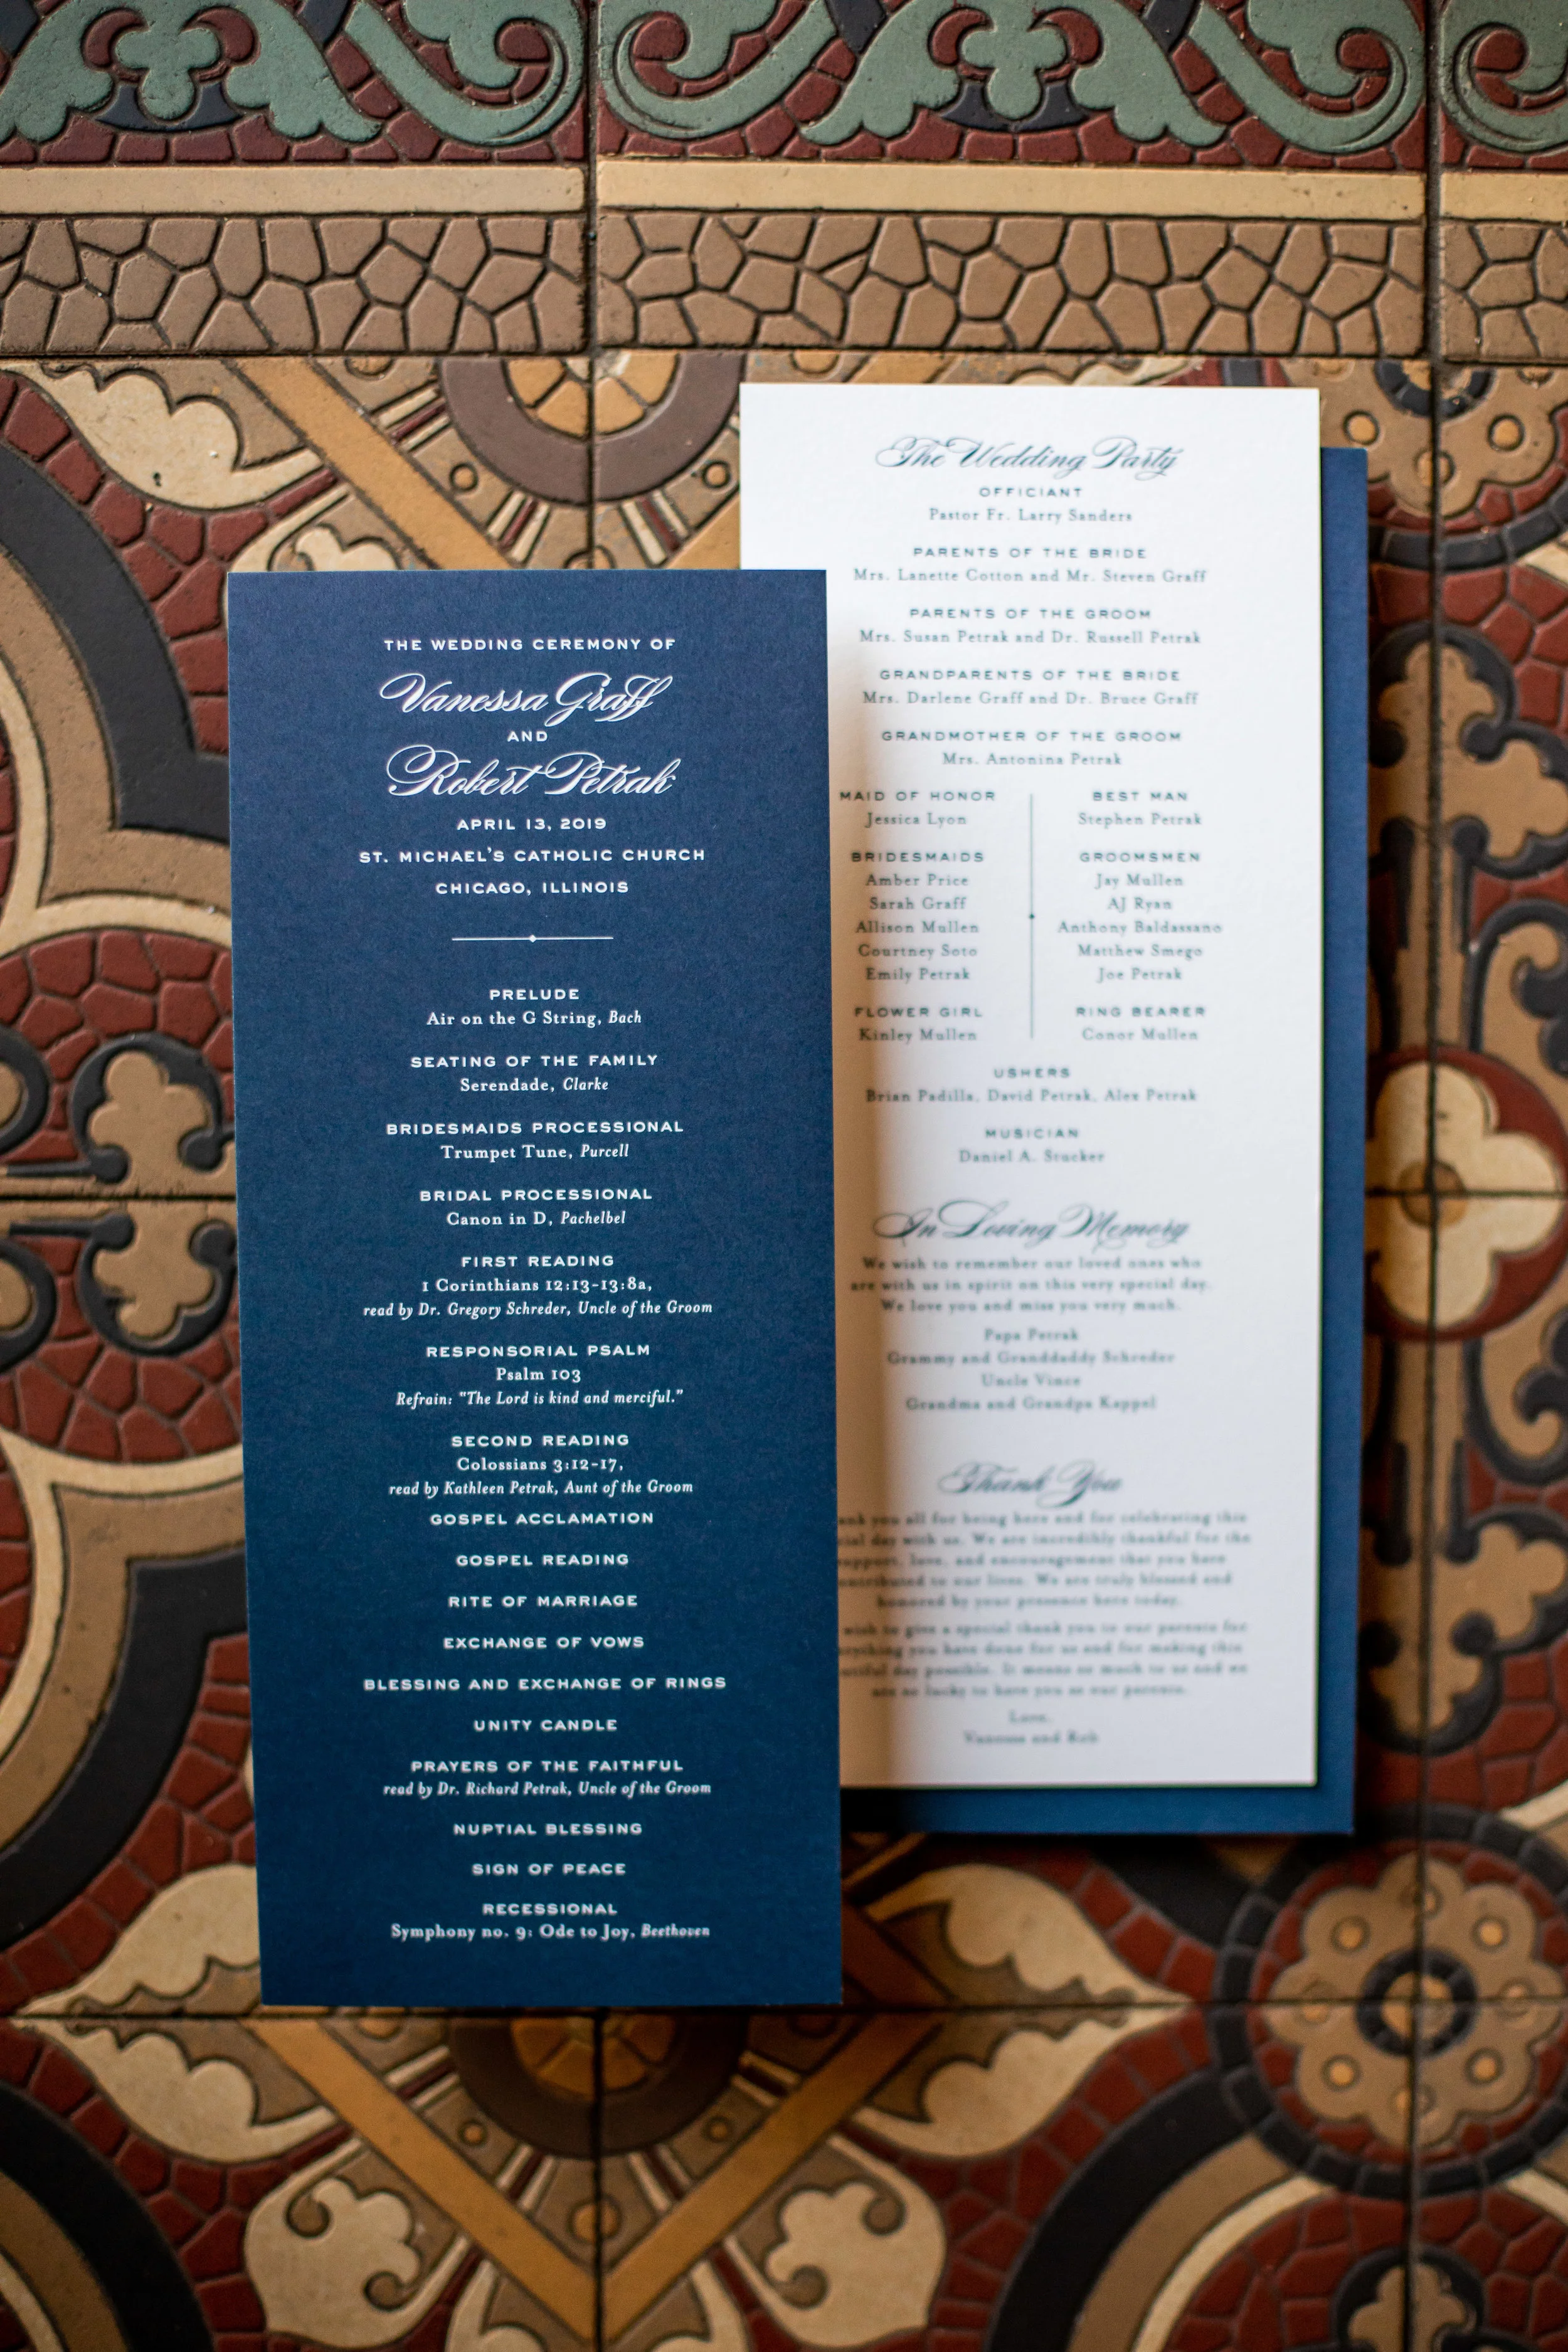 THE WEDDING CEREMONY OF
Vanessa Graff
AND
Robert Petrak
APRIL 13, 2019
ST. MICHAEL'S CATHOLIC CHURCH
CHICAGO, ILLINOIS
PRELUDE
Air on the G String, Bach
SEATING OF THE FAMILY
Serendade, Clarke
BRIDESMAIDS PROCESSIONAL
Trumpet Tune, Purcell
BRIDAL PROCESSIONAL
Canon in D, Pachelbel
FIRST READING
1 Corinthians 12:13-13:8a,
read by Dr. Gregory Schreder, Uncle of the Groom
RESPONSORIAL PSALM
Psalm 103
Refrain: "The Lord is kind and merciful."
SECOND READING
Colossians 3:12-17,
read by Kathleen Petrak, Aunt of the Groom
GOSPEL ACCLAMATION
GOSPEL READING
RITE OF MARRIAGE
EXCHANGE OF VOWS
BLESSING AND EXCHANGE OF RINGS
UNITY CANDLE
PRAYERS OF THE FAITHFUL
read by Dr. Richard Petrak, Uncle of the Groom
NUPTIAL BLESSING
SIGN OF PEACE
RECESSIONAL
Symphony no. 9: Ode to Joy, Beethoven
The Wedding Party
OFFICIANT
Pastor Fr. Larry Sanders
PARENTS OF THE BRIDE
Mrs. Lanette Cotton and Mr. Steven Graff
PARENTS OF THE GROOM
Mrs. Susan Petrak and Dr. Russell Petrak
GRANDPARENTS OF THE BRIDE
Mrs. Darlene Graff and Dr. Bruce Graff
GRANDMOTHER OF THE GROOM
Mrs. Antonina Petrak
MAID OF HONOR
Jessica Lyon
BRIDESMAIDS
Amber Price
Sarah Graff
Allison Mullen
Courtney Soto
Emily Petrak
FLOWER GIRL
Kinley Mullen
BEST MAN
Stephen Petrak
GROOMSMEN
Jay Mullen
AJ Ryan
Anthony Baldassano
Matthew Smego
Joe Petrak
RING BEARER
Conor Mullen
USHERS
Brian Padilla, David Petrak, Alex Petrak
MUSICIAN
Daniel A. Stucker
In Loving Memory
We wish to remember our loved ones who
are with us in spirit on this very special day.
We love you and miss you very much.
Papa Petrak
Grammy and Granddaddy Schreder
Uncle Vince
Grandma and Grandpa Kappel
Thank You
you all for being here and for celebrating this
day with us. We are incredibly thankful for the
support, love, and encouragement that you have
to our lives. We are truly blessed and
honored by your presence here today.
wish to give a special thank you to our parents for
you have done for us and for making this
day possible. It means so much to us and we
are so lucky to have you as our parents.
Love,
Vanessa and Rob